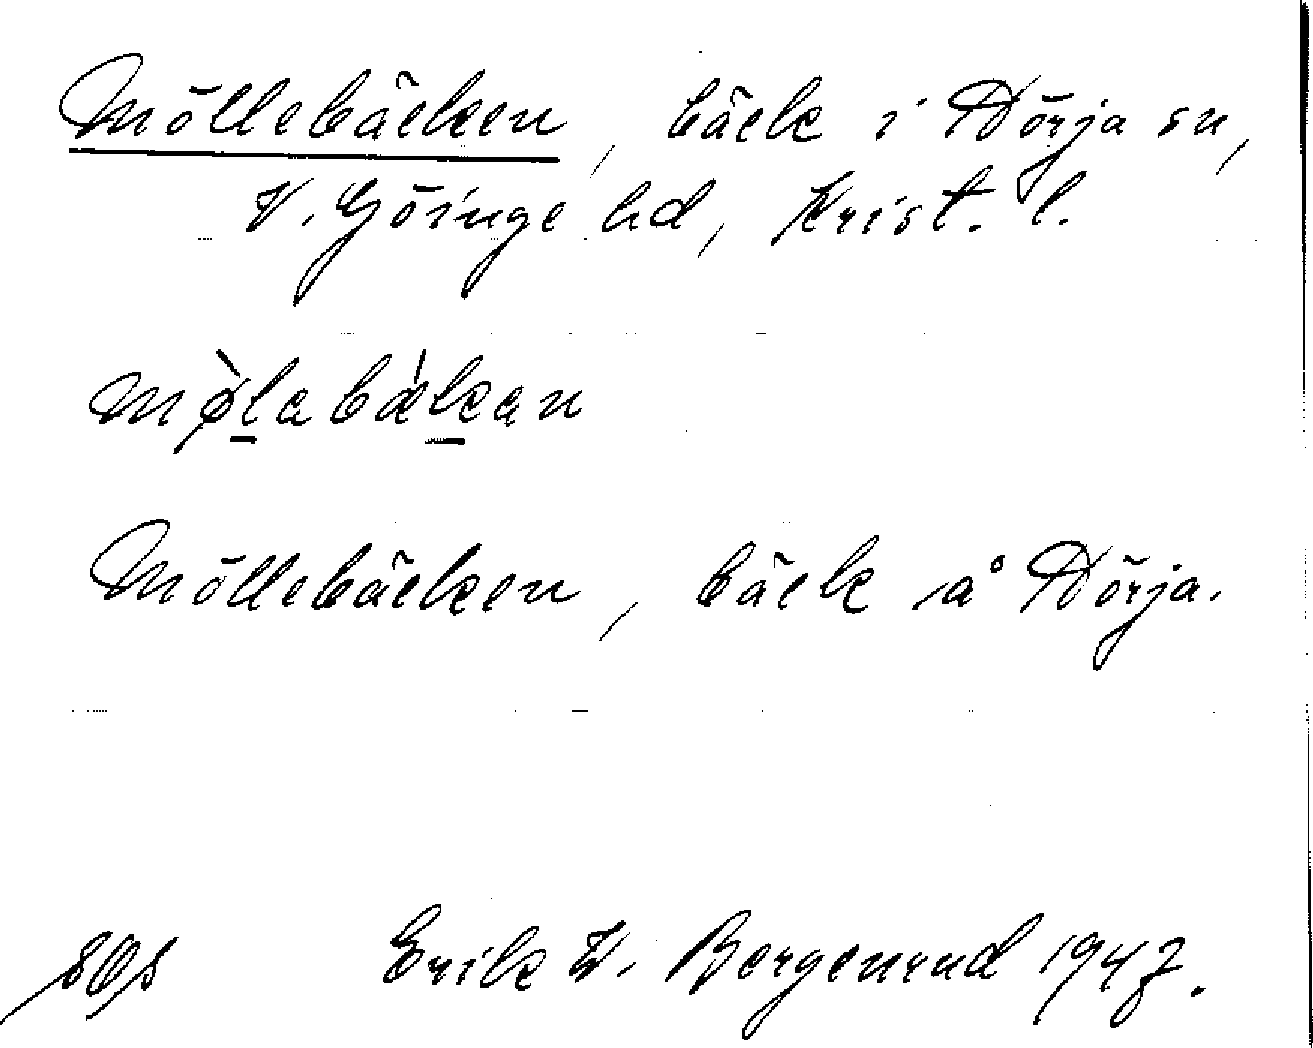 Möllebäcken, bäck i Dörja sn,
V. Göinge hd, Krist. l.
mø̀labǽkan
Möllebäcken, bäck å Dörja.
Erik W. Bergenrud 1947.